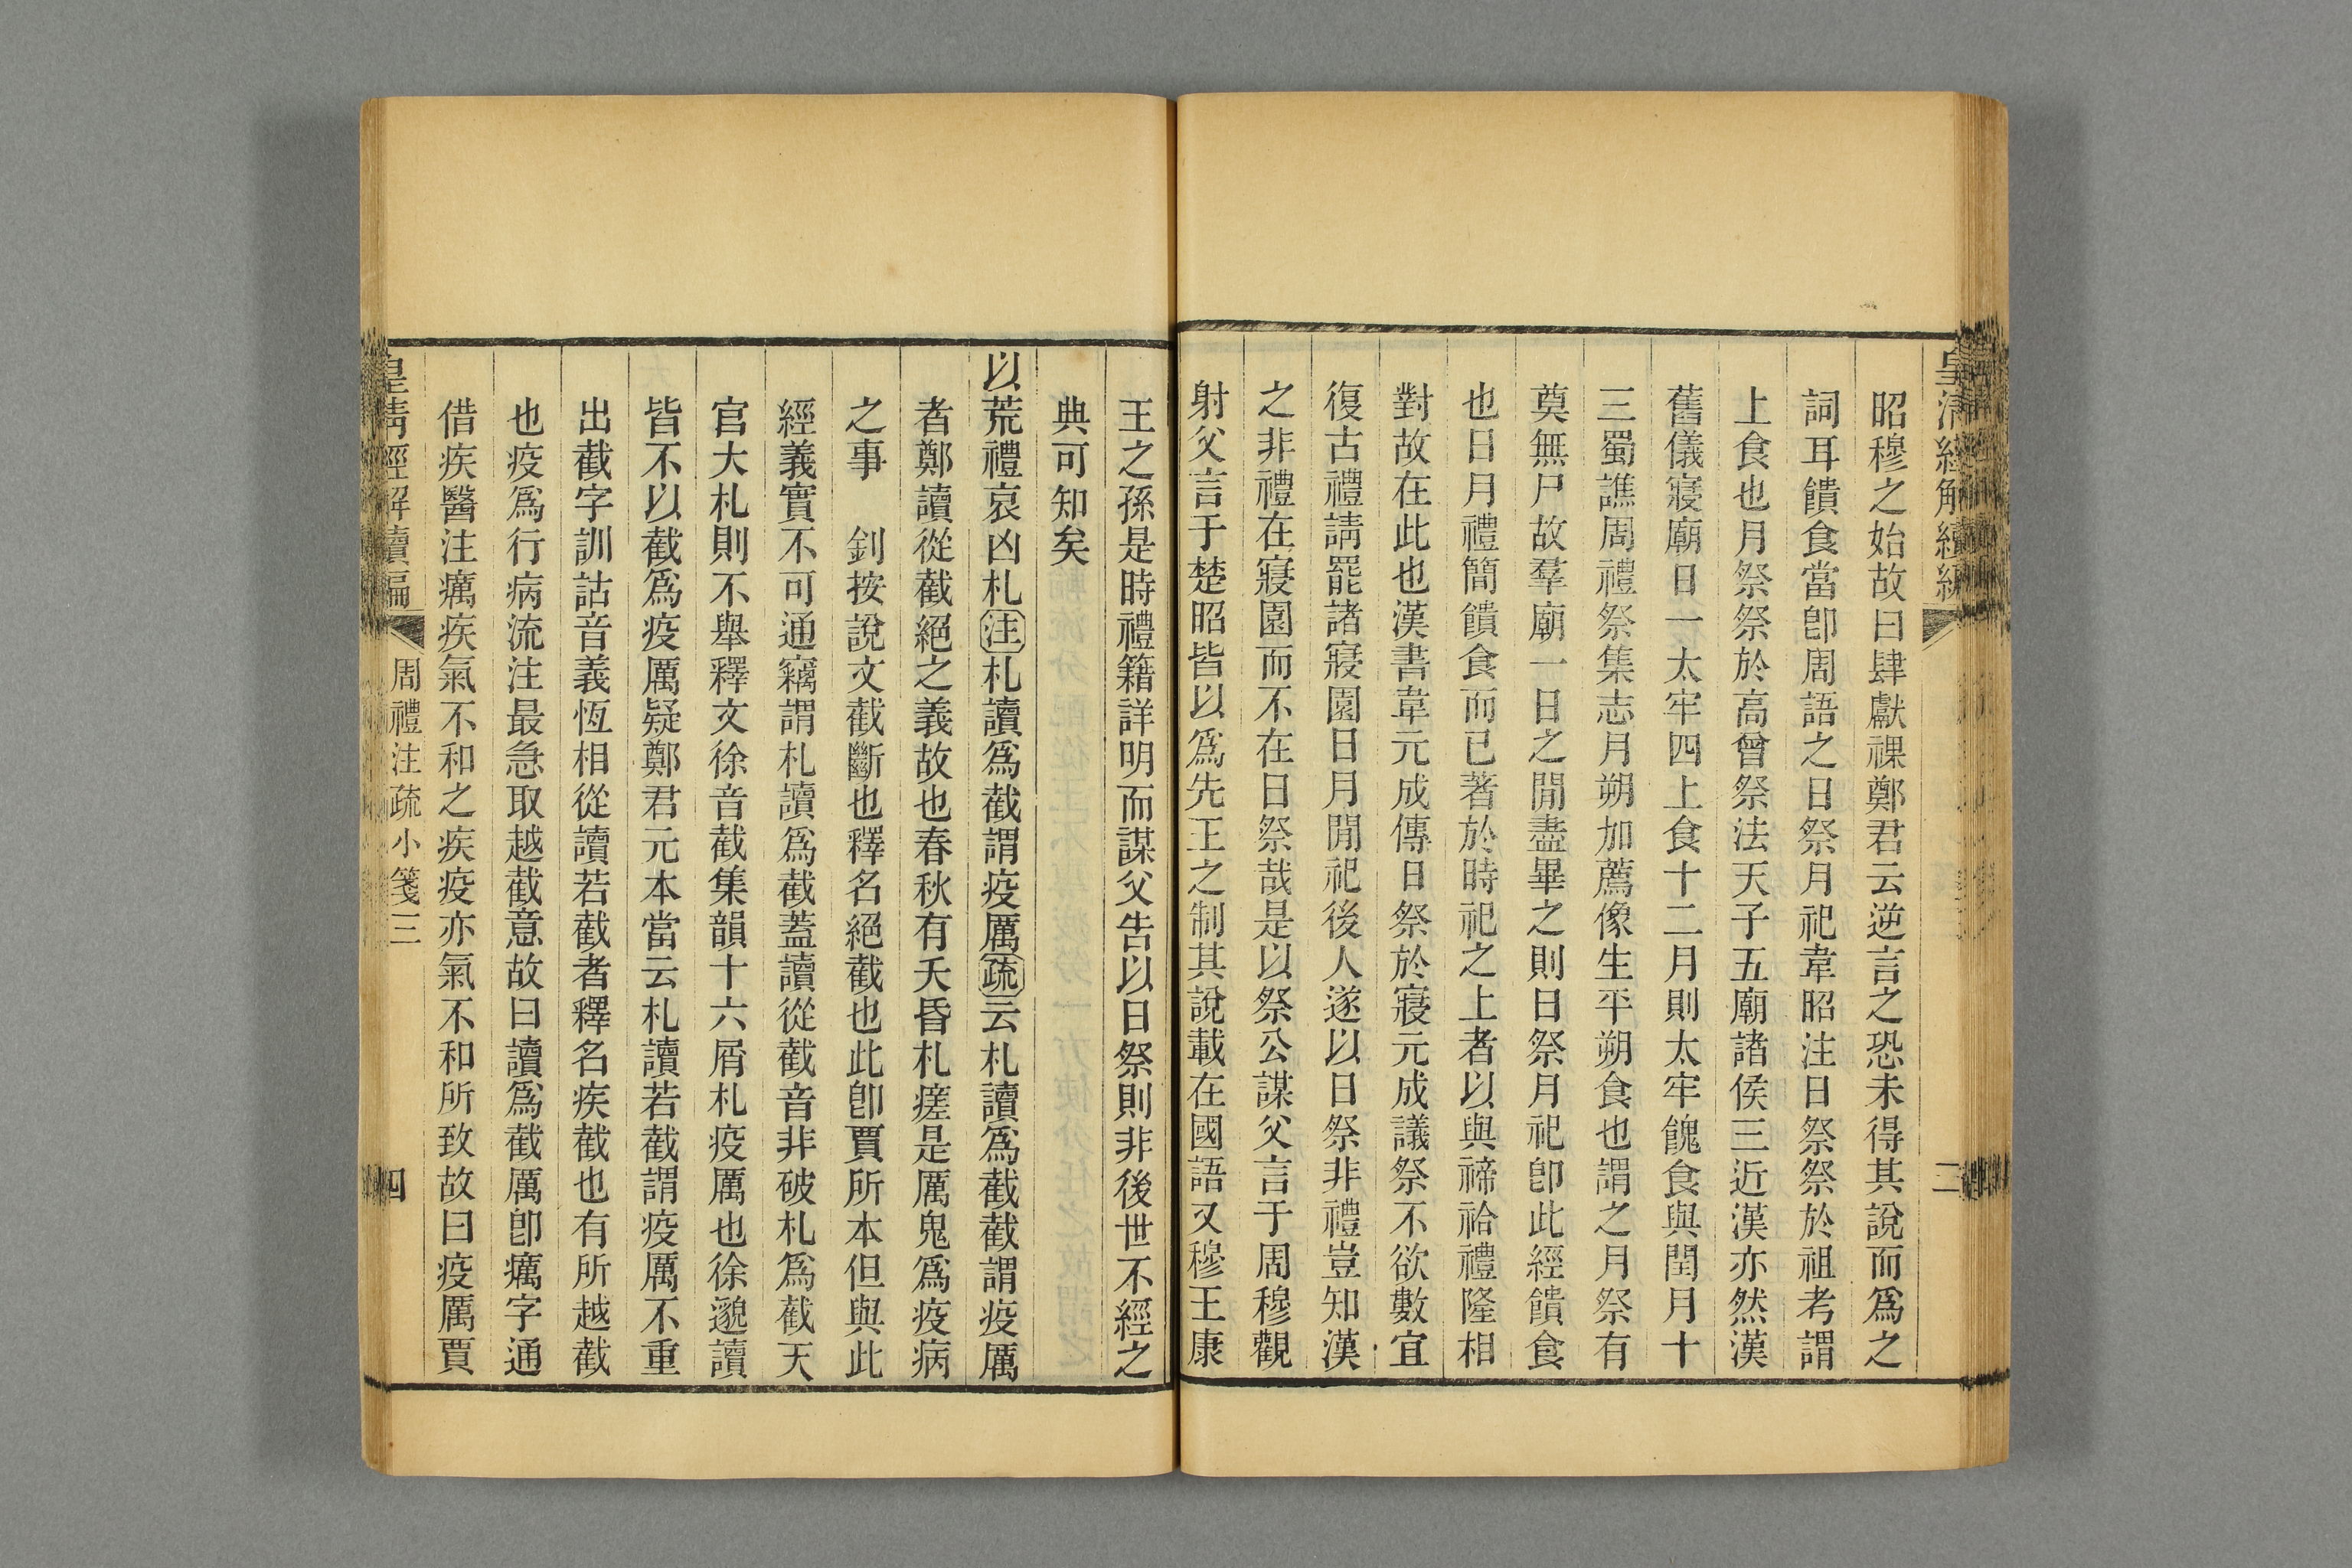 昭穆之始故曰肆獻祼鄭君云逆言之恐未得其說而爲之
詞耳饋食當卽周語之日祭月祀韋昭注日祭祭於祖考謂
上食也月祭祭於高曾祭法天子五廟諸侯三近漢亦然漢
舊儀寢廟日一太牢四上食十二月則太牢餽食與閏月十
三蜀譙周禮祭集志月朔加薦像生平朔食也謂之月祭有
奠無尸故羣廟一日之閒盡畢之則日祭月祀卽此經饋食
也日月禮簡饋食而已著於時祀之上者以與禘祫禮隆相
對故在此也漢書韋元成傳日祭於寢元成議祭不欲數宜
復古禮請罷諸寢園日月閒祀後人遂以日祭非禮豈知漢
之非禮在寢園而不在日祭哉是以祭公謀父言于周穆觀
射父言于楚昭皆以爲先王之制其說載在國語又穆王康
王之孫是時禮籍詳明而謀父告以日祭則非後世不經之
典可知矣
以荒禮哀凶札注札讀爲截謂疫厲疏云札讀爲截截謂疫厲
者鄭讀從截絕之義故也春秋有夭昏札瘥是厲鬼爲疫病
之事　釗按說文截斷也釋名絕截也此卽賈所本但與此
經義實不可通竊謂札讀爲截蓋讀從截音非破札爲截天
官大札則不舉釋文徐音截集韻十六屑札疫厲也徐邈讀
皆不以截爲疫厲疑鄭君元本當云札讀若截謂疫厲不重
出截字訓詁音義恆相從讀若截者釋名疾截也有所越截
也疫爲行病流注最急取越截意故曰讀爲截厲卽癘字通
借疾醫注癘疾氣不和之疾疫亦氣不和所致故曰疫厲賈
皇清經解續編
周禮注疏小箋三
四